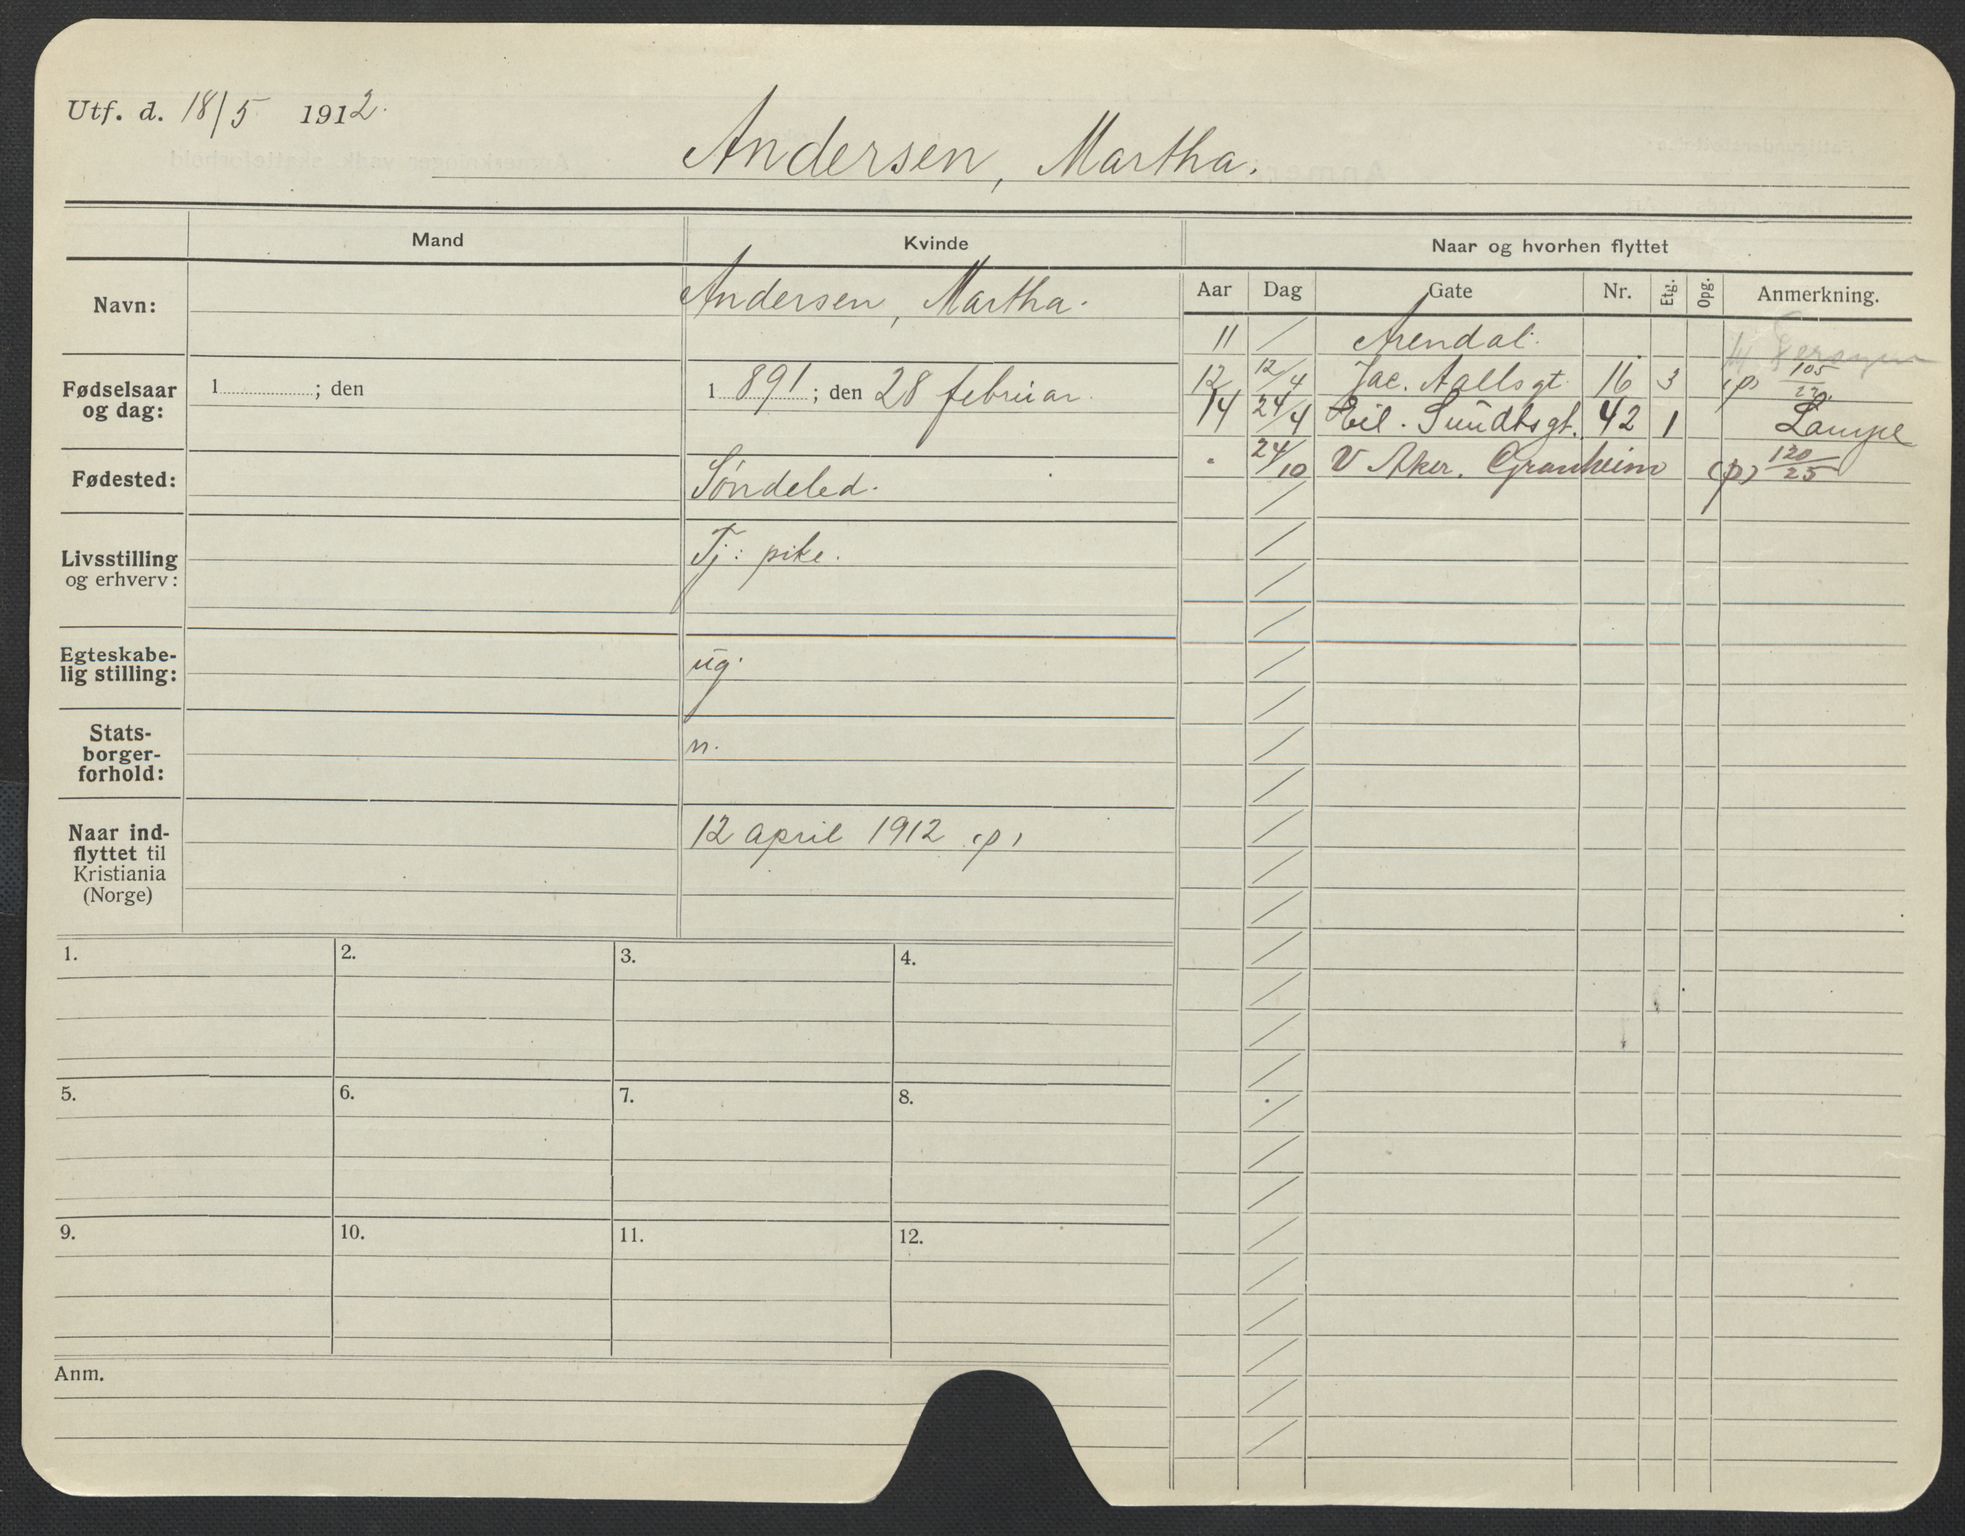 Utf. d. 18/5 1912.
Andersen, Martha.
Mand
Kvinde
Naar og hvorhen flyttet
Navn:
Andersen, Martha.
Fødselsaar
og dag:
1 ; den
1 891 ; den 28 februar.
Fødested:
Søndeled.
Livsstilling
og erhverv:
Tj: pike.
Egteskabe-
lig stilling:
ug.
Stats-
borger-
forhold:
n.
Naar ind-
flyttet til
Kristiania
(Norge)
12 april 1912 (p)
Aar Dag Gate Nr. Etg. Opg. Anmerkning.
11 / Arendal.
12 12/4 Jac. Aallsgt. 16 3 (p) 105/22
14 24/4 Eil. Sundtsgt. 42 1 Lampe
" 24/10 V Aker. Granheim (p) 120/25
1. 2. 3. 4.
5. 6. 7. 8.
9. 10. 11. 12.
Anm.